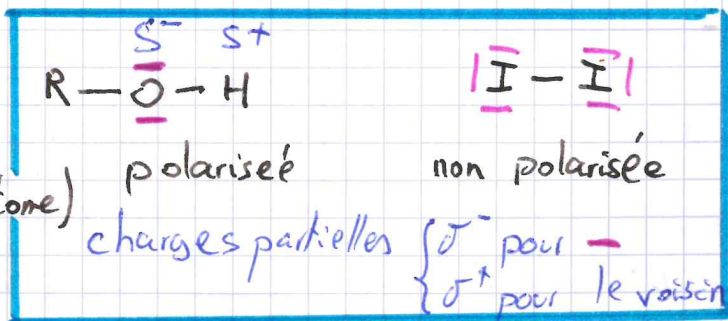 δ⁻ δ+
R — O — H |I — I|
polariseé non polarisée
tome)
charges partielles { δ⁻ pour —
δ⁺ pour le voisin